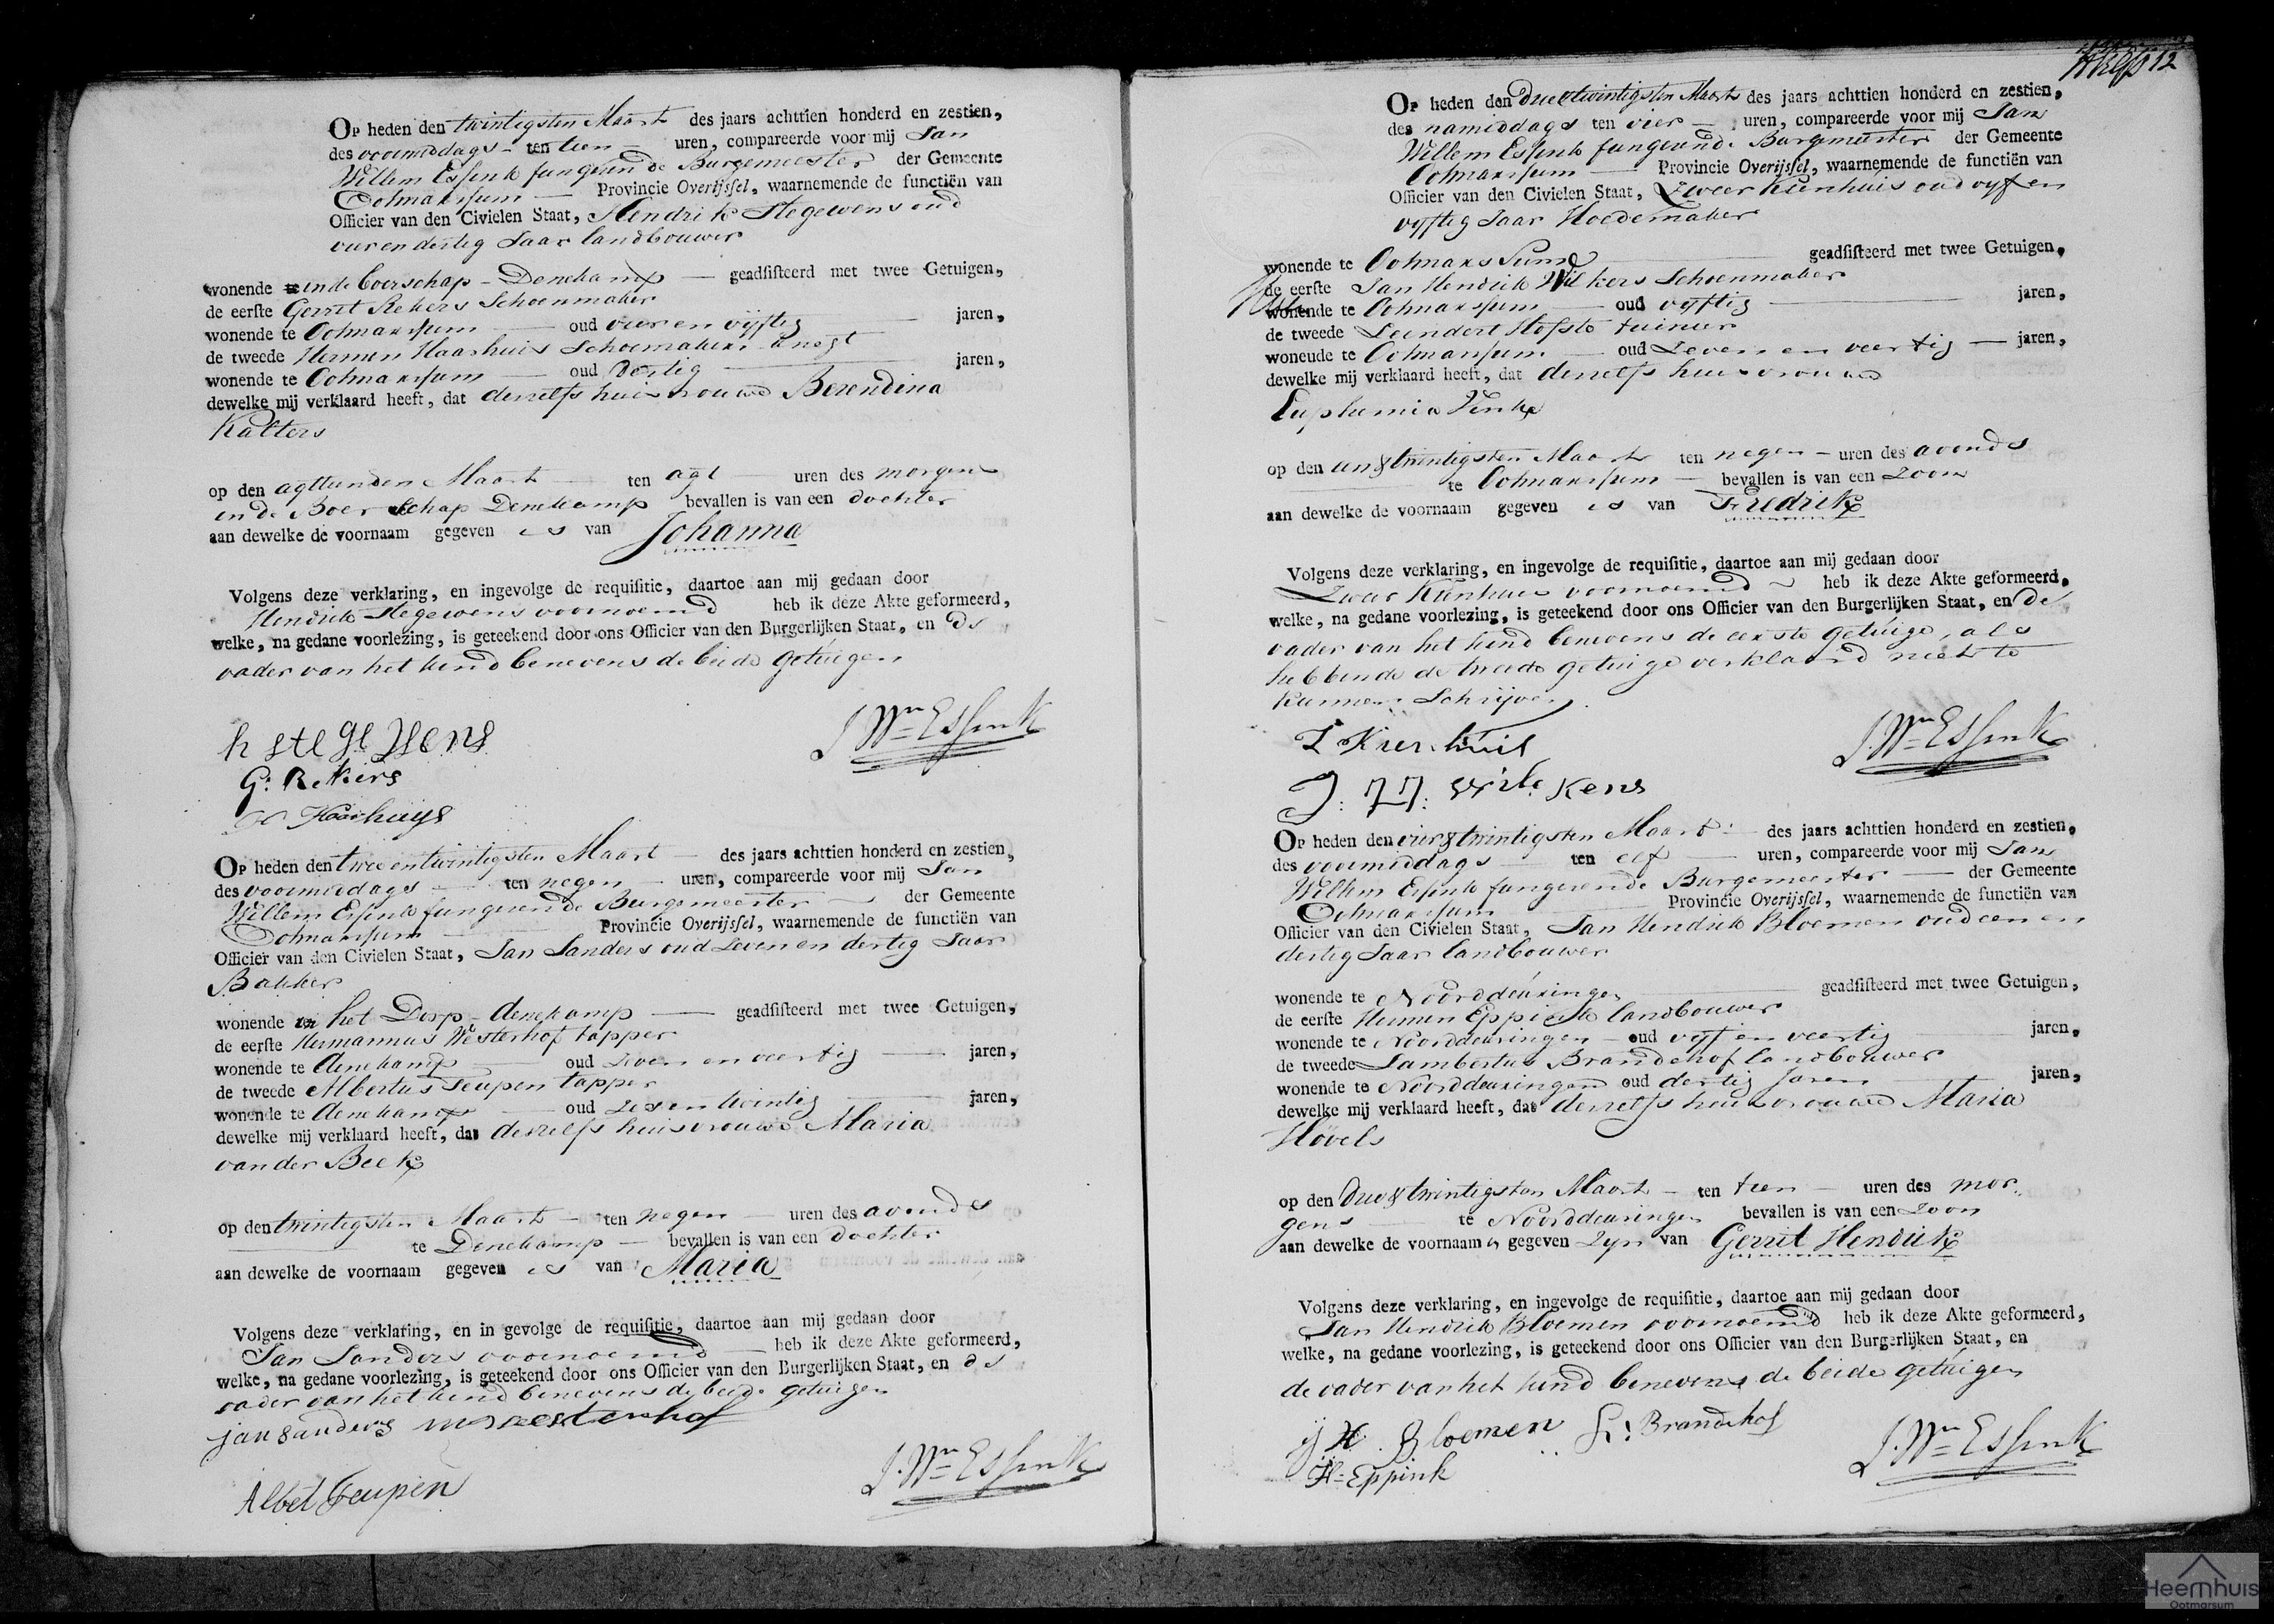 Op heden den twintigsten Maart des jaars achttien honderd en zestien,
des voormiddags ten tien uren, compareerde voor mij Jan
Willem Essink fungerende Burgemeester der Gemeente
Ootmarssum Provincie Overijssel, waarnemende de functiën van
Officier van den Civielen Staat, Hendrik Stegewens oud
vier en dertig Jaar landbouwer
wonende in de boerschap Denekamp geadsisteerd met twee Getuigen,
de eerste Gerrit Rekers Schoenmaker
wonende te Ootmarssum oud vier en vijftig jaren,
de tweede Hermen Haarhuis Schoemakers knegt
wonende te Ootmarssum oud dertig jaren,
dewelke mij verklaard heeft, dat deszelfs huisvrouwe Berendina
Kalters
op den agttienden Maart ten agt uren des morgens
in de Boerschap Denekamp bevallen is van een dochter
aan dewelke de voornaam gegeven is van Johanna
Volgens deze verklaring, en ingevolge de requisitie, daartoe aan mij gedaan door
Hendrik Stegewens voornoemd heb ik deze Akte geformeerd,
welke, na gedane voorlezing, is geteekend door ons Officier van den Burgerlijken Staat, en de
vader van het kind benevens de beide getuigen
h stege wens
J. Wm Essink
G: Rekers
H Haarhuijs
Op heden den twee en twintigsten Maart des jaars achttien honderd en zestien,
des voormiddags ten negen uren, compareerde voor mij Jan
Willem Essink fungerende Burgemeester der Gemeente
Ootmarssum Provincie Overijssel, waarnemende de functiën van
Officier van den Civielen Staat, Jan Sanders oud zeven en dertig Jaar
Bakker
wonende in het Dorp Denekamp geadsisteerd met twee Getuigen,
de eerste Hermannus Westerhof tapper
wonende te denekamp oud zeven en veertig jaren,
de tweede Albertus Teupen tapper
wonende te denekamp oud zes en twintig jaren,
dewelke mij verklaard heeft, dat deszelfs huisvrouwe Maria
van der Beek
op den twintigsten Maart ten negen uren des avonds
te Denekamp bevallen is van een dochter
aan dewelke de voornaam gegeven is van Maria
Volgens deze verklaring, en in gevolge de requisitie, daartoe aan mij gedaan door
Jan Sanders voornoemd heb ik deze Akte geformeerd,
welke, na gedane voorlezing, is geteekend door ons Officier van den Burgerlijken Staat, en de
vader van het kind benevens de beide getuigen
jan sanders westerhof
J. Wm Essink
Albet Teupen
12
Op heden den drie & twintigsten Maart des jaars achttien honderd en zestien,
des namiddags ten vier uren, compareerde voor mij Jan
Willem Essink fungerende Burgemeester der Gemeente
Ootmarssum Provincie Overijssel, waarnemende de functiën van
Officier van den Civielen Staat, Zweer Kienhuis oud vyf en
vyftig Jaar Hoedemaker
wonende te Ootmarssum geadsisteerd met twee Getuigen,
de eerste Jan Hendrik Wilkers Schoenmaker
wonende te Ootmarssum oud vyftig jaren,
de tweede Leendert Hofste tuinier
woneude te Ootmarssum oud zeven en veertig jaren,
dewelke mij verklaard heeft, dat deszelfs huisvrouwe
Euphemia Vinke
op den een & twintigsten Maart ten negen uren des avonds
te Ootmarssum bevallen is van een zoon
aan dewelke de voornaam gegeven is van Fredrik
Volgens deze verklaring, en ingevolge de requisitie, daartoe aan mij gedaan door
Zweer Kienhuis voornoemd heb ik deze Akte geformeerd,
welke, na gedane voorlezing, is geteekend door ons Officier van den Burgerlijken Staat, en de
vader van het kind benevens de eerste getuige, als
hebbende de tweede getuige verklaard niet te
kunnen Schrijven.
Z Kienhuis
J. Wm Essink
J: H: Wilkens
Op heden den vier & twintigsten Maart des jaars achttien honderd en zestien,
des voormiddags ten elf uren, compareerde voor mij Jan
Willem Essink fungerende Burgemeester der Gemeente
Ootmarssum Provincie Overijssel, waarnemende de functiën van
Officier van den Civielen Staat, Jan Hendrik Bloemen oud een en
dertig Jaar landbouwer
wonende te Noorddeuringen geadsisteerd met twee Getuigen,
de eerste Hermen Eppink landbouwer
wonende te Noorddeuringen oud vyf en veertig jaren,
de tweede Lambertus Brandehof landbouwer
wonende te Noorddeuringen oud dertig Jaren jaren,
dewelke mij verklaard heeft, dat deszelfs huisvrouwe Maria
Hövels
op den drie & twintigsten Maart ten tien uren des mor
gens te Noorddeuringen bevallen is van een zoon
aan dewelke de voornaam n gegeven zyn van Gerrit Hendrik
Volgens deze verklaring, en ingevolge de requisitie, daartoe aan mij gedaan door
Jan Hendrik Bloemen voornoemd heb ik deze Akte geformeerd,
welke, na gedane voorlezing, is geteekend door ons Officier van den Burgerlijken Staat, en
de vader van het kind benevens de beide getuigen
H. Bloemen L: Brandehof
J. Wm Essink
H= Eppink
Heemhuis
Ootmarsum